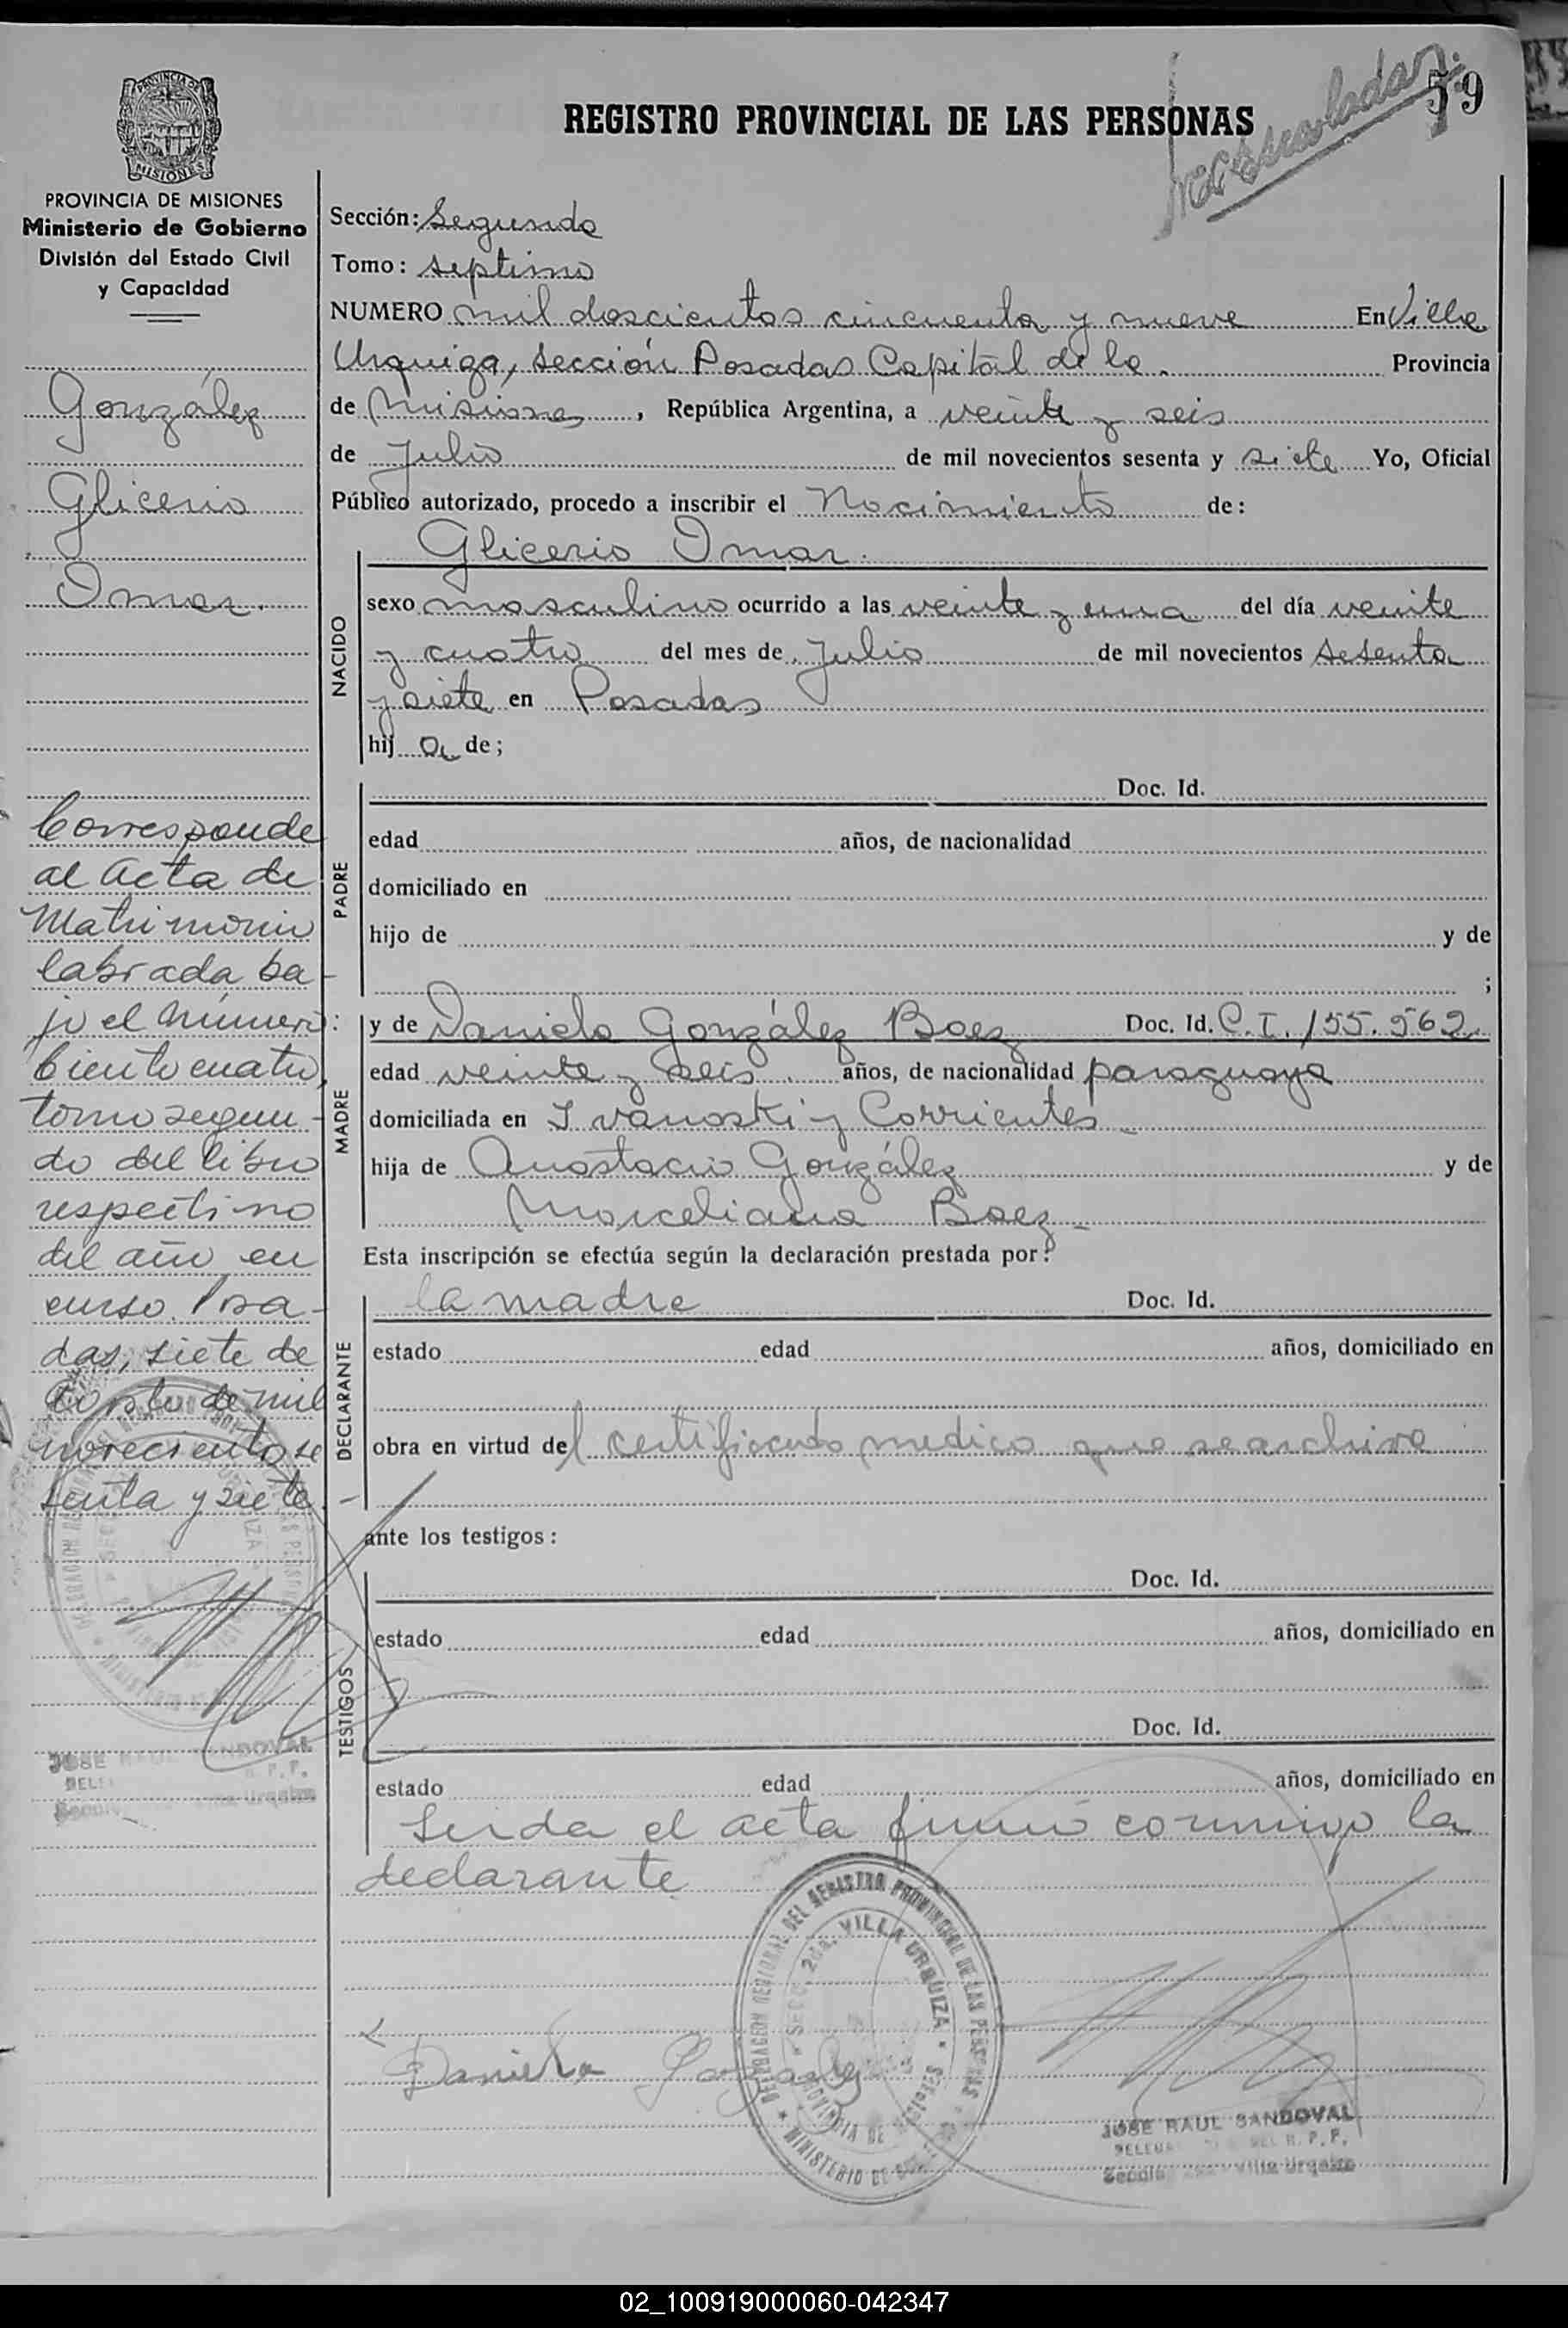 59
REGISTRO PROVINCIAL DE LAS PERSONAS
MISIONES
PROVINCIA DE MISIONES
Ministerio de Gobierno
División del Estado Civil
y Capacidad
González
Glicerio
Omar.
Corresponde
al Acta de
Matrimonio
labrada ba-
jo el número:
Ciento cuatro,
tomo segun-
do del libro
respectivo
del año en
curso. Posa-
das, siete de
de mil
novecientos se
senta y siete.-
JOSE RAUL SANDOVAL
Sección: Segunda
Tomo: septimo
NUMERO mil doscientos cincuenta y nueve En Villa
Urquiza, Sección Posadas Capital de la . Provincia
de Misiones , República Argentina, a veinte y seis
de Julio de mil novecientos sesenta y siete Yo, Oficial
Público autorizado, procedo a inscribir el Nacimiento de:
Glicerio Omar.
NACIDO
sexo masculino ocurrido a las veinte y una del día veinte
y cuatro del mes de Julio de mil novecientos sesenta
y siete en Posadas
hij o de;
PADRE
Doc. Id.
edad años, de nacionalidad
domiciliado en
hijo de y de
;
MADRE
y de Daniela González Baez Doc. Id. C.I. 155.562
edad veinte y seis años, de nacionalidad paraguaya
domiciliada en Ivanoski y Corrientes
hija de Anastacio González y de
Marceliana Baez -
Esta inscripción se efectúa según la declaración prestada por:
DECLARANTE
la madre Doc. Id.
estado edad años, domiciliado en
obra en virtud del certificado medico que se archiva
ante los testigos:
TESTIGOS
Doc. Id.
estado edad años, domiciliado en
Doc. Id.
estado edad años, domiciliado en
Leida el acta firmó conmigo la
declarante
Daniela Gonzalez
DELEGACION REGIONAL DEL REGISTRO PROVINCIAL DE LAS PERSONAS
SECC. 2da. VILLA URQUIZA
JOSE RAUL SANDOVAL
R. P. P.
Villa Urquiza
02_100919000060-042347